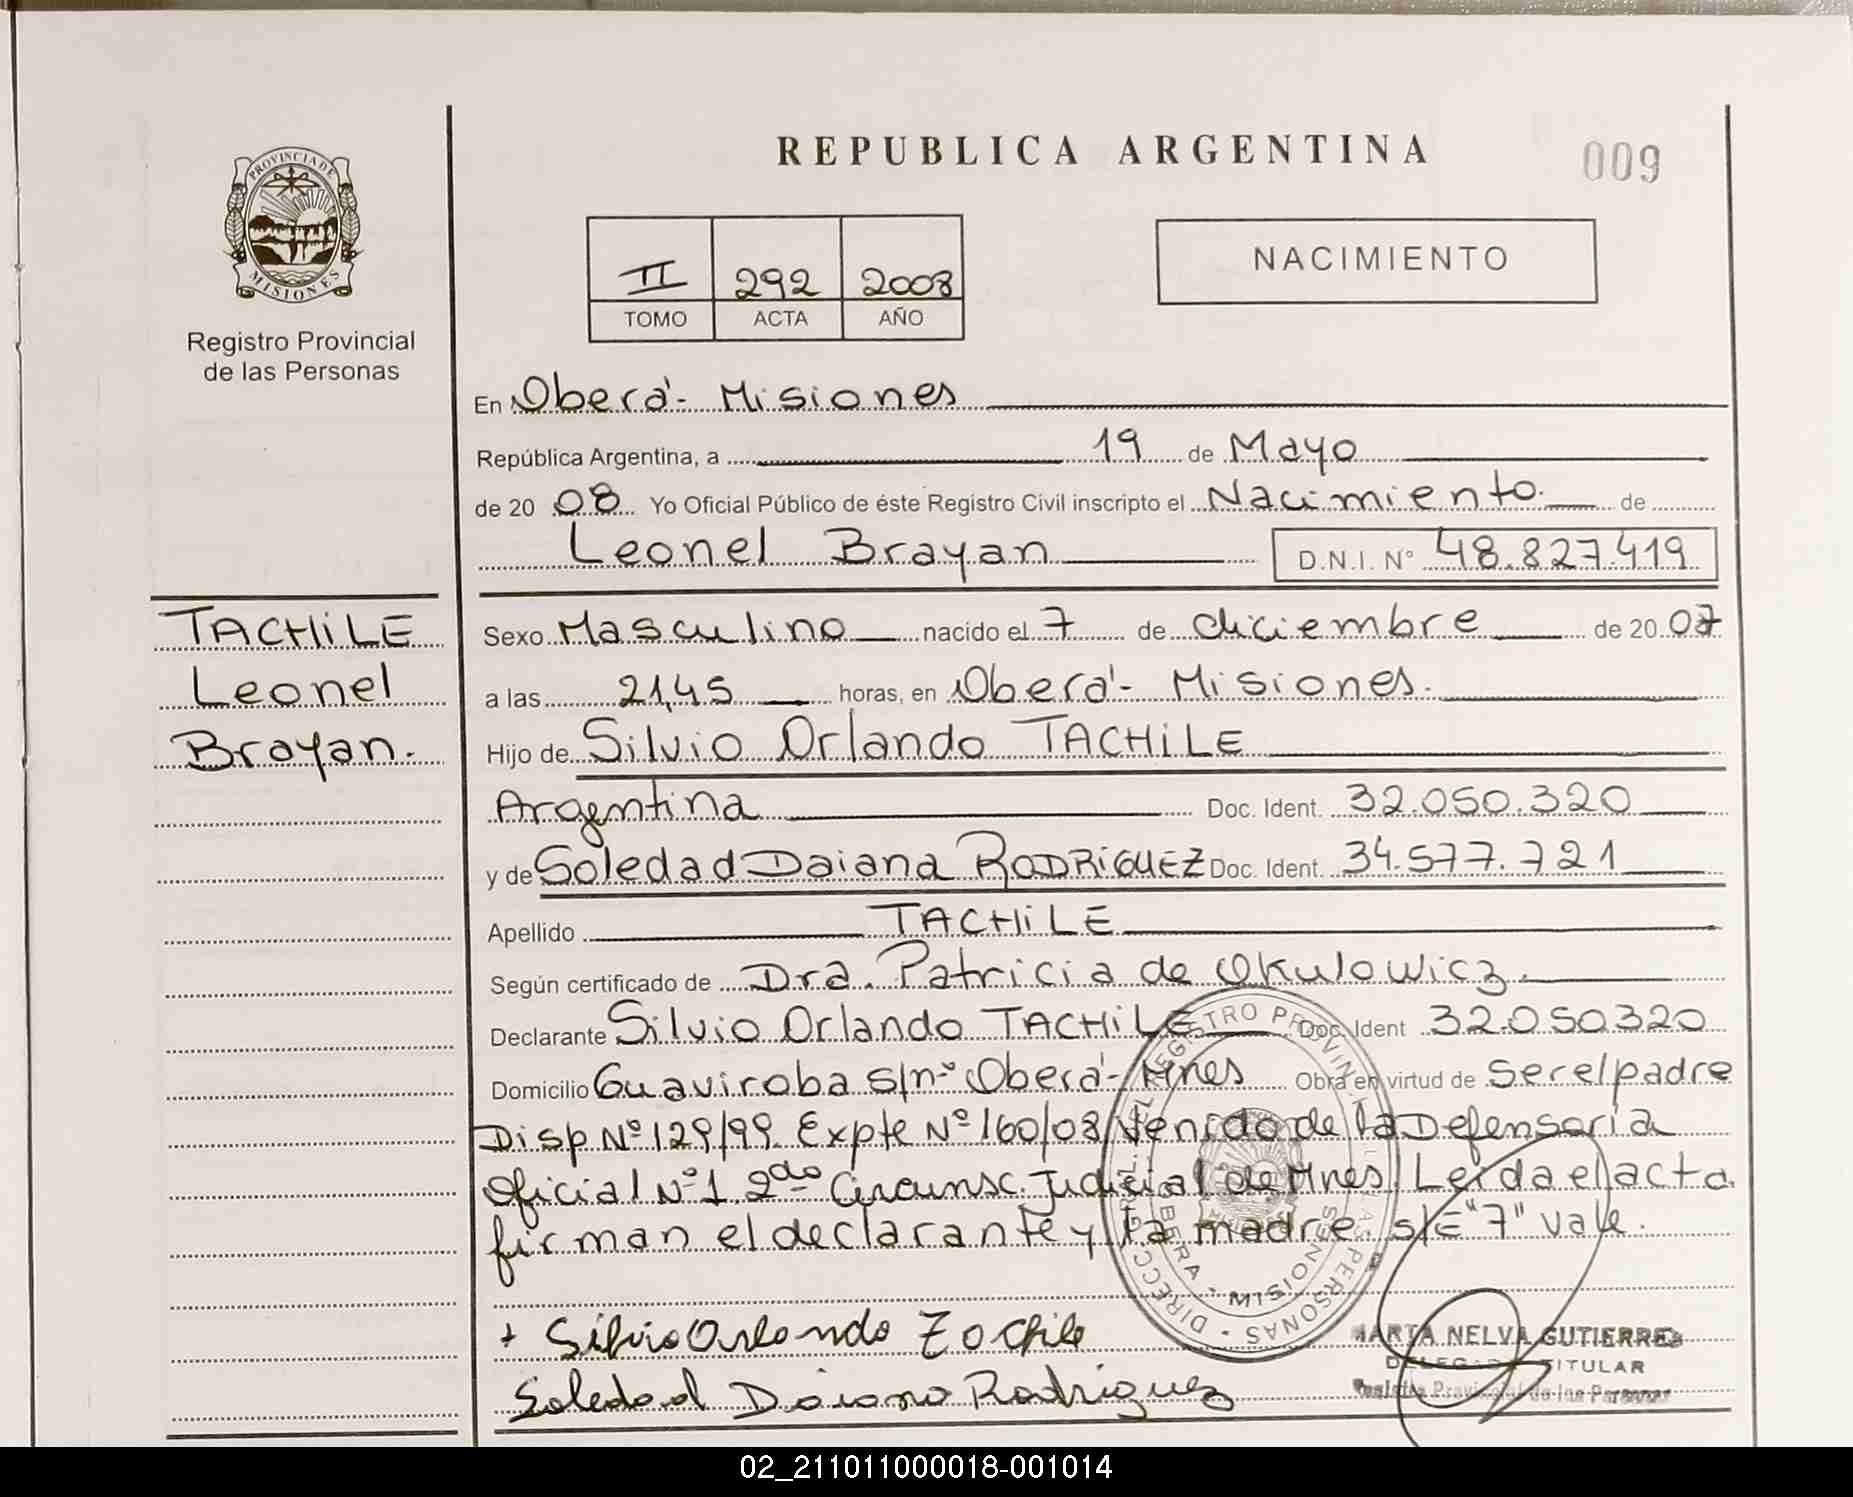 REPUBLICA ARGENTINA
009
PROVINCIA DE
MISIONES
Registro Provincial
de las Personas
II 292 2008
TOMO ACTA AÑO
NACIMIENTO
En Oberá - Misiones
República Argentina, a 19 de Mayo
de 20 08 Yo Oficial Público de éste Registro Civil inscripto el Nacimiento. de
Leonel Brayan D.N.I. N° 48.827.419
TACHiLE
Leonel
Brayan.
Sexo Masculino nacido el 7 de diciembre de 20 07
a las 21,45 horas, en Oberá - Misiones.
Hijo de Silvio Orlando TACHiLE
Argentina Doc. Ident. 32.050.320
y de Soledad Daiana RODRiGUEZ Doc. Ident. 34.577.721
Apellido TACHiLE
Según certificado de Dra. Patricia de Okulowicz.
Declarante Silvio Orlando TACHiLE Doc. Ident 32.050320
Domicilio Guaviroba s/nº Oberá - Mnes Obra en virtud de Ser el padre
Disp Nº 129/99 Expte Nº 160/08 Venido de la Defensoria
Oficial Nº 1 2da Circunsc. Judicial de Mnes. Leida el acta
firman el declarante y la madre s/E "7" vale.
DIRECC. GRAL. DEL REGISTRO PROVINCIAL DE LAS PERSONAS
OBERA - MISIONES
+ Silvio Orlando Tochile
Soledad Daiana Rodriguez
MARTA NELVA GUTIERREZ
DELEGADA TITULAR
Registro Provincial de las Personas
02_211011000018-001014